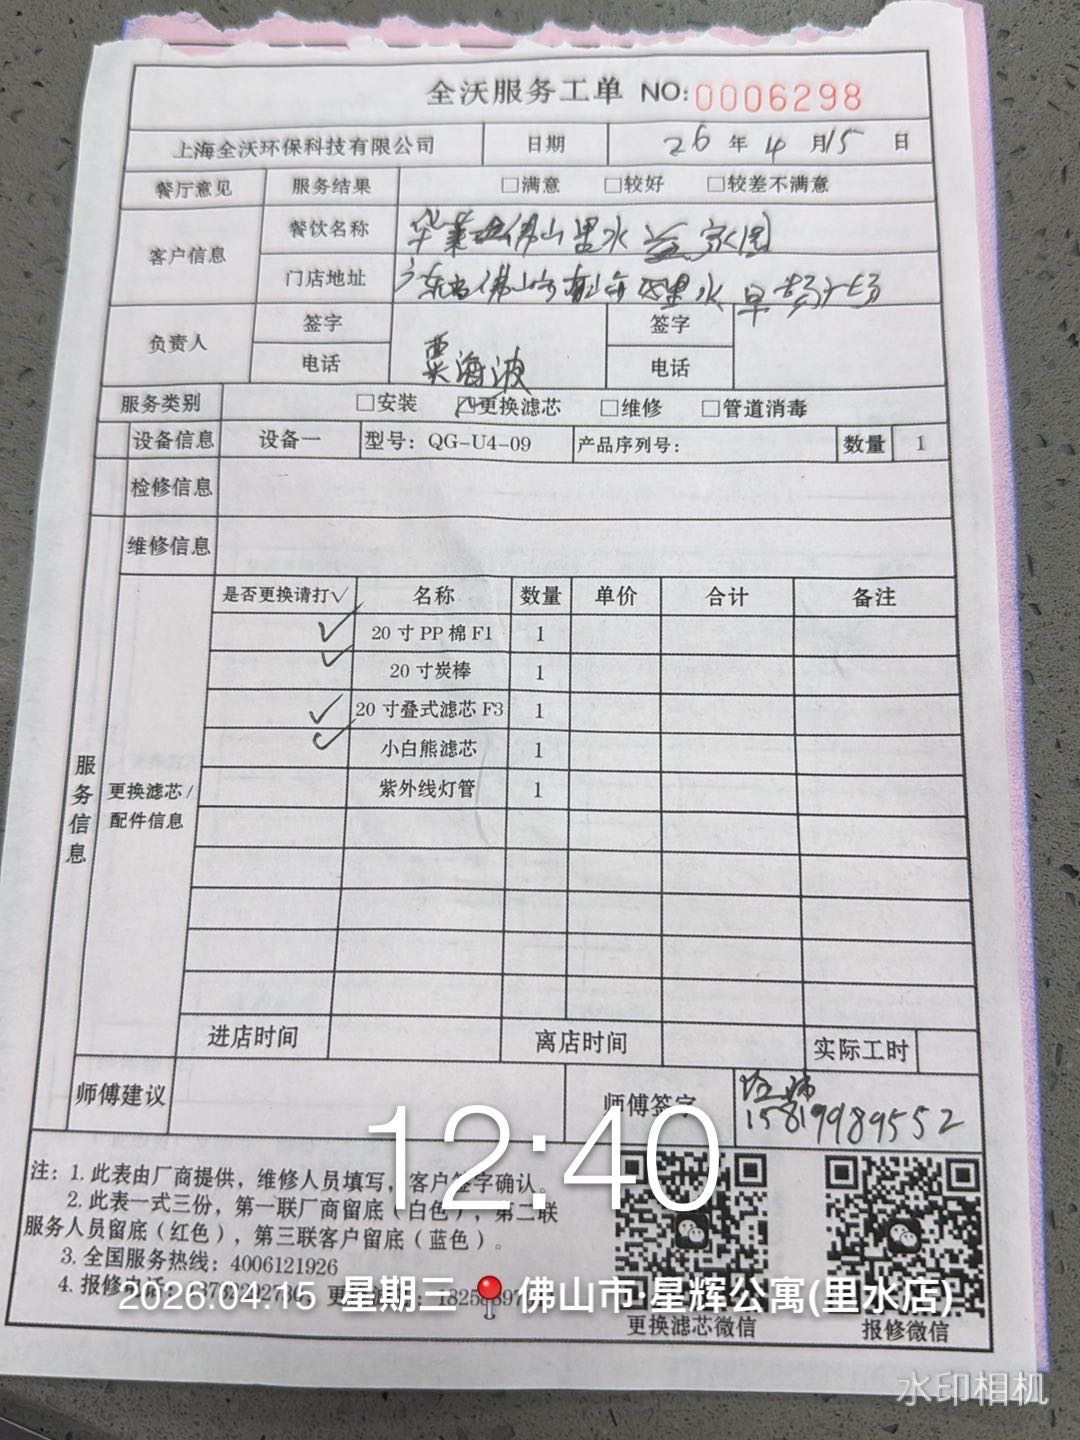 全沃服务工单 NO:0006298
上海全沃环保科技有限公司 日期 26年4月15日
餐厅意见 服务结果 □满意 □较好 □较差不满意
客户信息 餐饮名称 华莱士佛山里水 家园
门店地址 广东省佛山市 里水 广场
负责人 签字 签字
电话 粟海波 电话
服务类别 □安装 ☑更换滤芯 □维修 □管道消毒
设备信息 设备一 型号：QG-U4-09 产品序列号： 数量 1
检修信息
维修信息
服务信息
更换滤芯/配件信息
是否更换请打√ 名称 数量 单价 合计 备注
✓ 20寸PP棉F1 1
✓ 20寸炭棒 1
✓ 20寸叠式滤芯F3 1
✓ 小白熊滤芯 1
紫外线灯管 1
进店时间 离店时间 实际工时
师傅建议 师傅签字
15819989552
12:40
注：1.此表由厂商提供，维修人员填写，客户签字确认。
2.此表一式三份，第一联厂商留底（白色），第二联
服务人员留底（红色），第三联客户留底（蓝色）。
3.全国服务热线：4006121926
4.报修电话：
2026.04.15 星期三 佛山市·星辉公寓(里水店)
更换滤芯微信 报修微信
水印相机